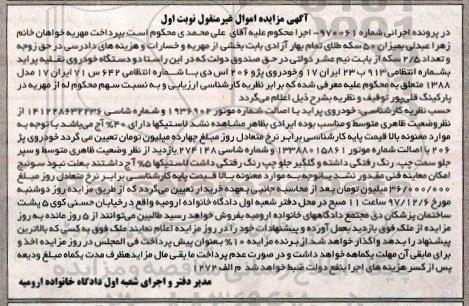 آگهی مزایده اموال غیرمنقول نوبت اول
در پرونده اجرائی شماره ۹۷۰۰۶۱۰- اجرا محکوم علیه آقای علی محمدی محکوم است بپرداخت مهریه خواهان خانم
زهرا عبدلی بمیزان ۵۰ سکه طلای تمام بهار آزادی بابت بخشی از مهریه و خسارات و هزینه های دادرسی در حق زوجه
و تعداد ۲/۵ سکه از بابت نیم عشر دولتی در حق صندوق دولت که در این راستا دو دستگاه خودروی نقلیه پراید
بشماره انتظامی ۹۱۳ ب ۲۳ ایران ۱۷ و خودروی پژو ۲۰۶ اس دی با شماره انتظامی ۶۴۲ س ۷۱ ایران ۱۷ مدل
۱۳۸۸ متعلق به محکوم علیه معرفی شده که برابر نظریه کارشناسی ارزیابی و به نسبت سهم محکوم له از مهریه در
پارکینگ قلی پور توقیف و نظریه بشرح ذیل اعلام می گردد
حسب نظریه کارشناسی خودروی پراید با اصالت شماره موتور ۱۹۳۶۹۰۲ و شماره شاسی ۱۴۱۲۲۸۶۳۲۲۳۶ از
نظر وضعیت ظاهری متوسط و مناسب بوده ایرادی بظاهر مشاهده نشد لاستیکها دارای ۴۰% آج می باشد با توجه به
موارد معنونه بالا قیمت پایه کارشناسی برابر نرخ متعادل روز مبلغ چهارده میلیون تومان تعیین می گردد خودروی پژو
۲۰۶ با اصالت شماره موتور ۱۳۳۸۸۰۱۵۸۶۱ و شماره شاسی ۲۷۴۱۴۸ بازدید از نظر وضعیت ظاهری متوسط و سپر
جلو سمت چپ رنگ رفتگی داشته و گلگیر جلو چپ رنگ رفتگی داشت لاستیکها ۵% آج داشتند بعلت نبود سوئیچ
امکان معاینه فنی مقدور نشد با توجه به موارد معنونه بالا قیمت پایه کارشناسی برابر نرخ متعادل روز مبلغ
۳۶/۰۰۰/۰۰۰ میلیون تومان بعد از محاسبه جانبی بعهده خریدار تعیین می گردد که از طریق مزایده روز دوشنبه
مورخ ۹۷/۱۲/۶ ساعت ۱۱ صبح در محل دفتر شعبه اول دادگاه خانواده ارومیه واقع در خیابان حسنی کوی ۵ پشت
ساختمان پزشکان دی مجتمع دادگاههای خانواده ارومیه بفروش خواهد رسید طالبین می توانند از ۵ روز مانده به روز
مزایده از ملک فوق بازدید بعمل آورده و پیشنهادات خود را در روز مزایده اعلام نمایند ملک فوق به کسی که بالاترین
پیشنهاد را بدهد واگذار خواهد شد از برنده مزایده ۱۰% بعنوان پیش پرداخت فی المجلس در روز مزایده اخذ و
برای مابقی آن مهلت یکماهه خواهد داشت و در صورت عدم پرداخت ما بقی مال مزایده ظرف مدت یکماه مبلغ ودیعه
پس از کسر هزینه های اجرا بنفع دولت ضبط خواهد شد م الف ۱۲۷۴
مدیر دفتر و اجرای شعبه اول دادگاه خانواده ارومیه